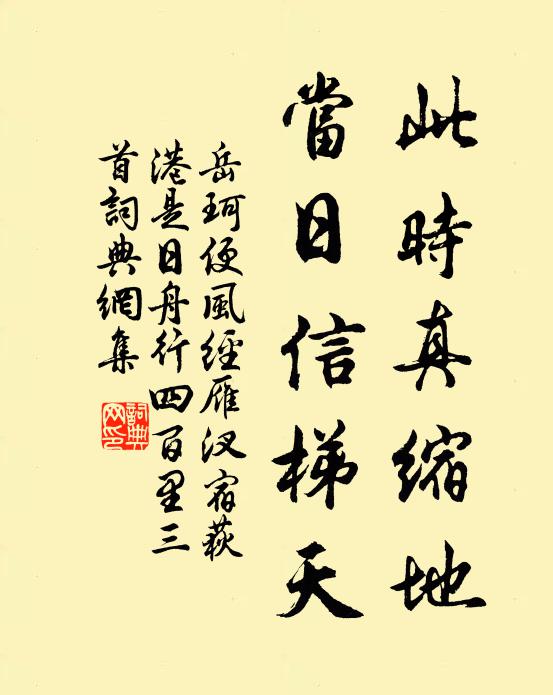 此時真縮地
當日信梯天
岳珂便風經雁汊宿荻
港是日舟行四百里三
首詞典網集
詞典
网印